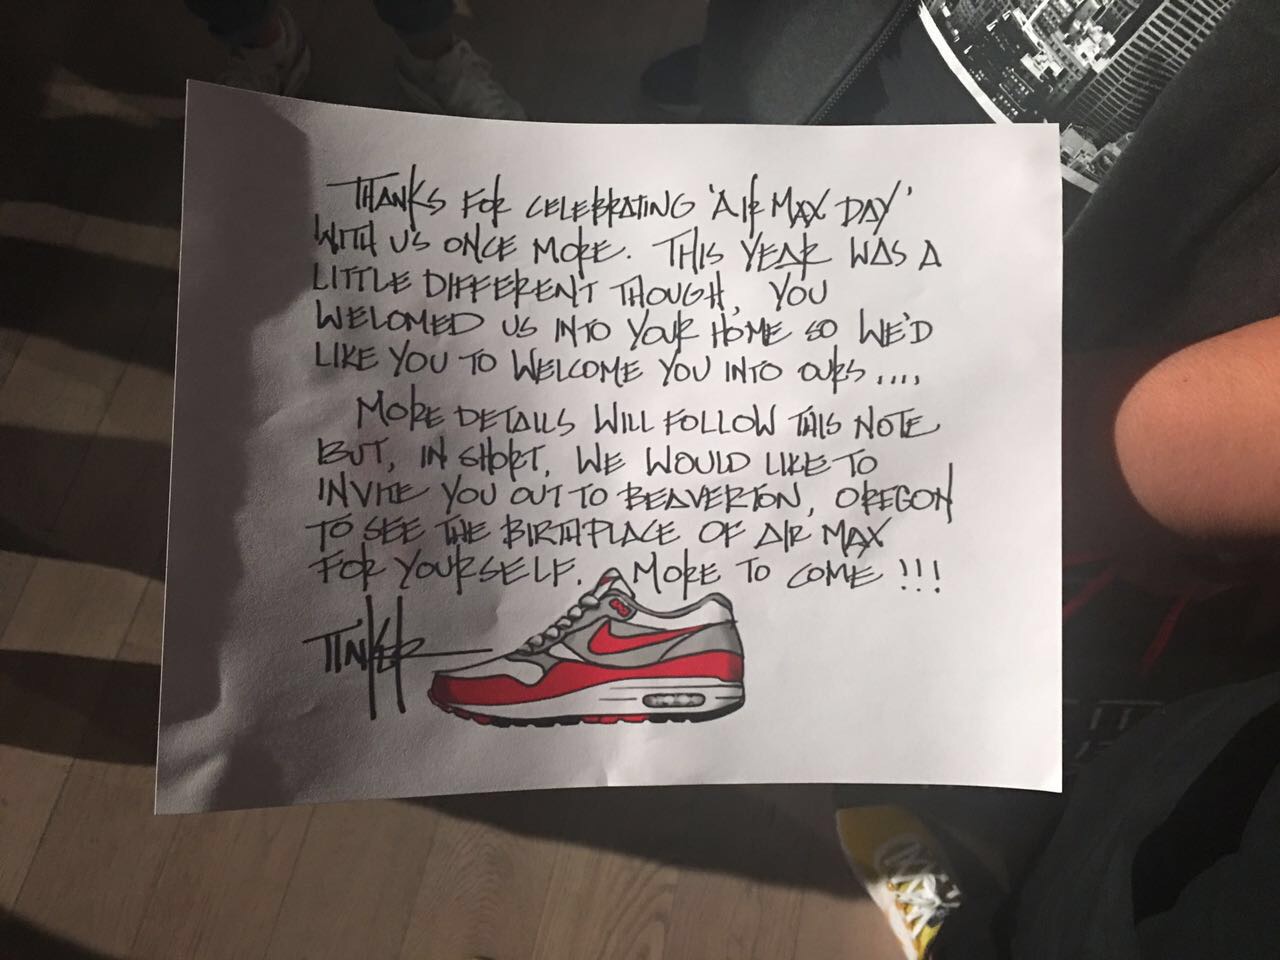 THANKS FOR CELEBRATING 'AIR MAX DAY'
WITH US ONCE MORE. THIS YEAR WAS A
LITTLE DIFFERENT THOUGH, YOU
WELOMED US INTO YOUR HOME SO WE'D
LIKE YOU TO WELCOME YOU INTO OURS....
MORE DETAILS WILL FOLLOW THIS NOTE
BUT, IN SHORT, WE WOULD LIKE TO
INVITE YOU OUT TO BEAVERTON, OREGON
TO SEE THE BIRTHPLACE OF AIR MAX
FOR YOURSELF. MORE TO COME !!!
TINKER